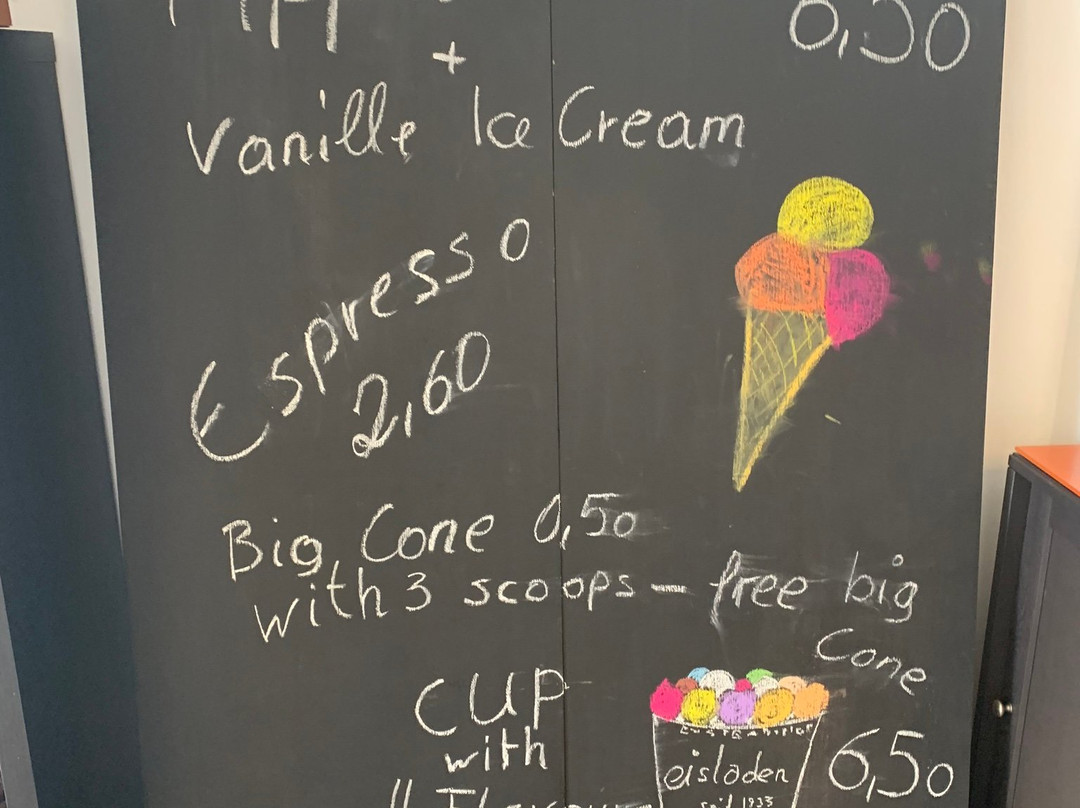 +
Vanille Ice Cream
Espresso
2,60
Big Cone 0,50
with 3 scoops - free big
Cone
CUP
with
eisladen
seit 1933
6,50